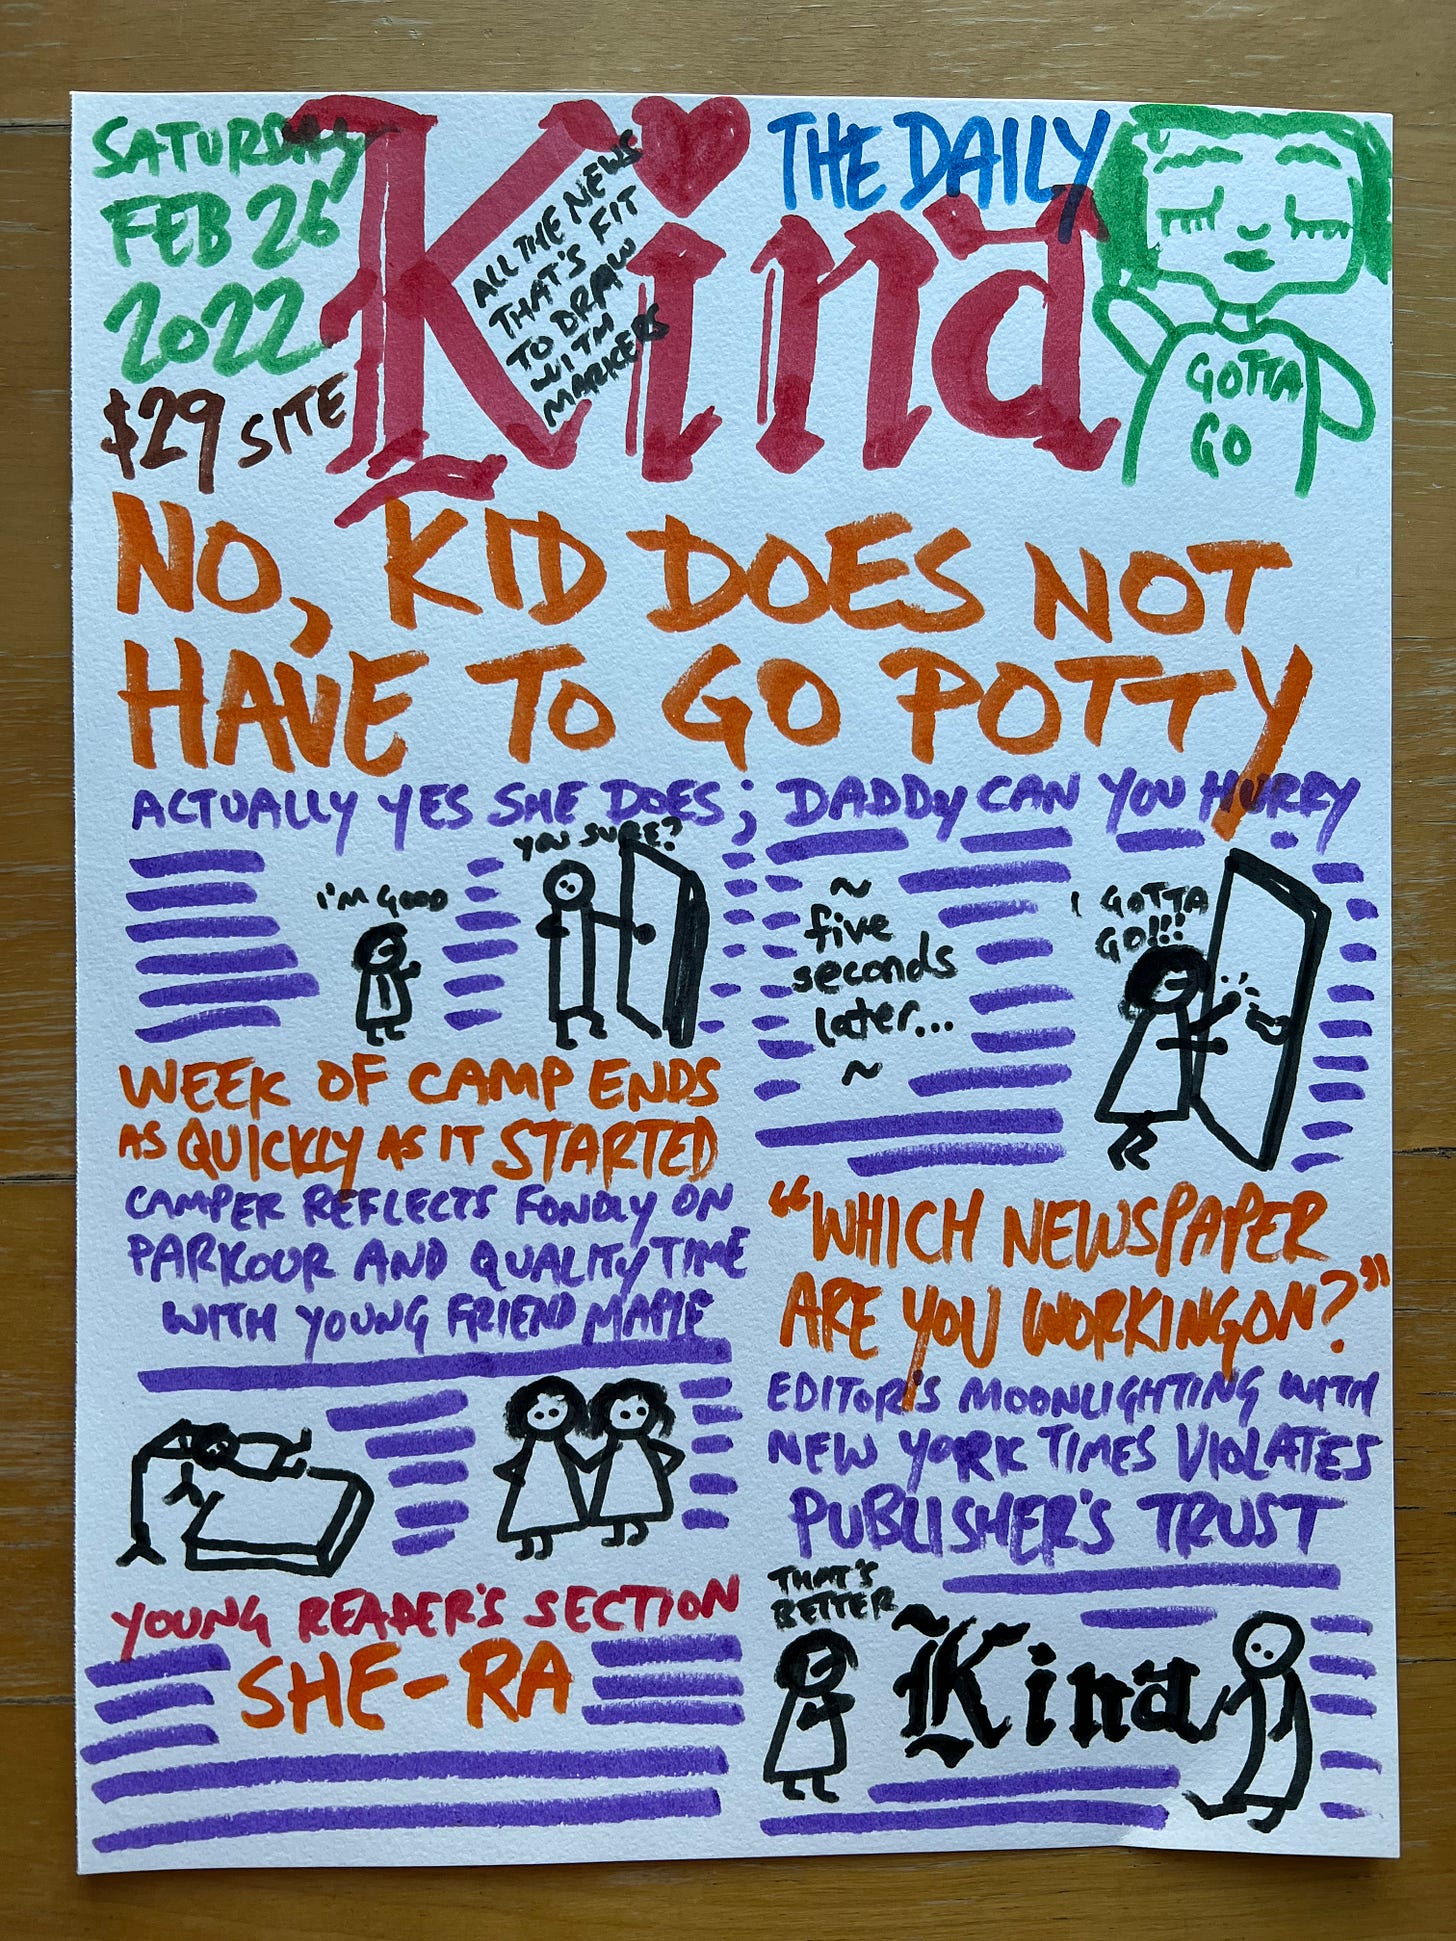 SATURDAY
FEB 26
2022
$29 SITE
THE DAILY
Kina
ALL THE NEWS
THAT'S FIT
TO DRAW
WITH
MARKERS
GOTTA
GO
NO, KID DOES NOT
HAVE TO GO POTTY
ACTUALLY YES SHE DOES; DADDY CAN YOU HURRY
I'M GOOD
YOU SURE?
~
five
seconds
later...
~
I GOTTA
GO!!!
WEEK OF CAMP ENDS
AS QUICKLY AS IT STARTED
CAMPER REFLECTS FONDLY ON
PARKOUR AND QUALITY TIME
WITH YOUNG FRIEND MAPLE
"WHICH NEWSPAPER
ARE YOU WORKING ON?"
EDITOR'S MOONLIGHTING WITH
NEW YORK TIMES VIOLATES
PUBLISHER'S TRUST
THAT'S
BETTER
Kina
YOUNG READER'S SECTION
SHE-RA